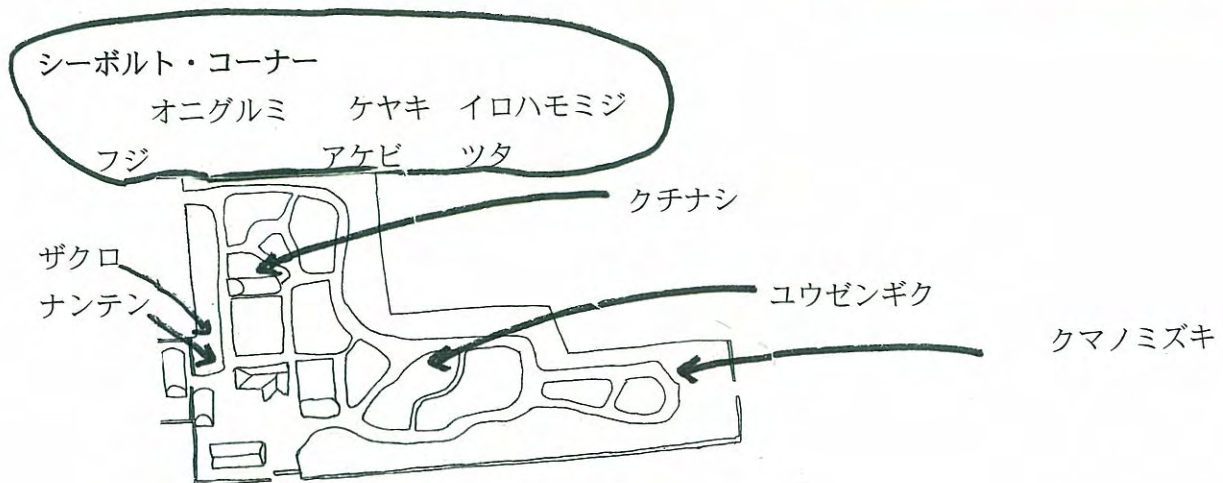 シーボルト・コーナー
オニグルミ ケヤキ イロハモミジ
フジ アケビ ツタ
クチナシ
ザクロ
ナンテン
ユウゼンギク
クマノミズキ